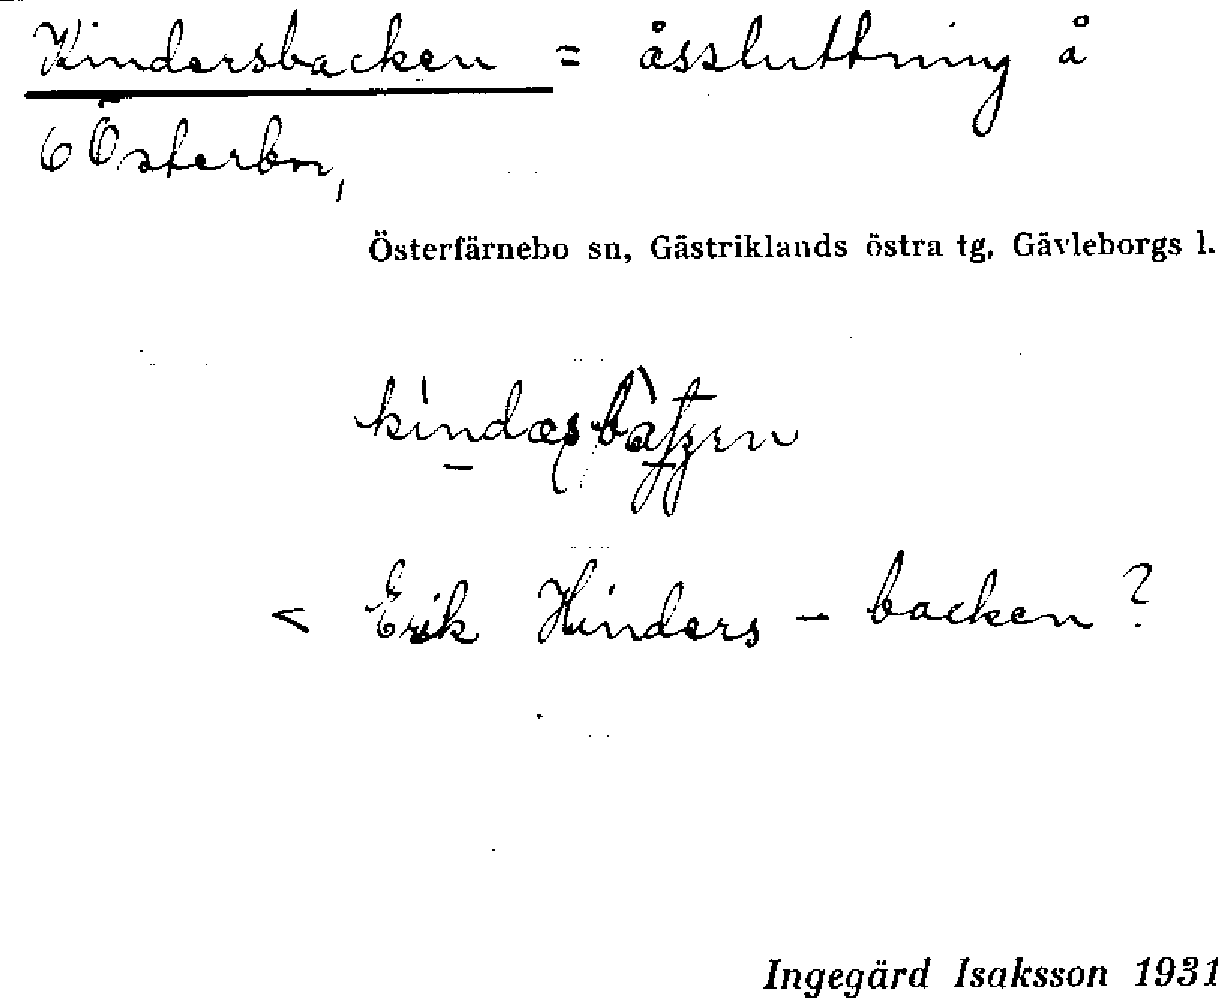 Kindersbacken = åssluttning å
6 Österbor,
Österfärnebo sn, Gästriklands östra tg, Gävleborgs l.
< Erik Hinders - backen ?
Ingegärd Isaksson 1931